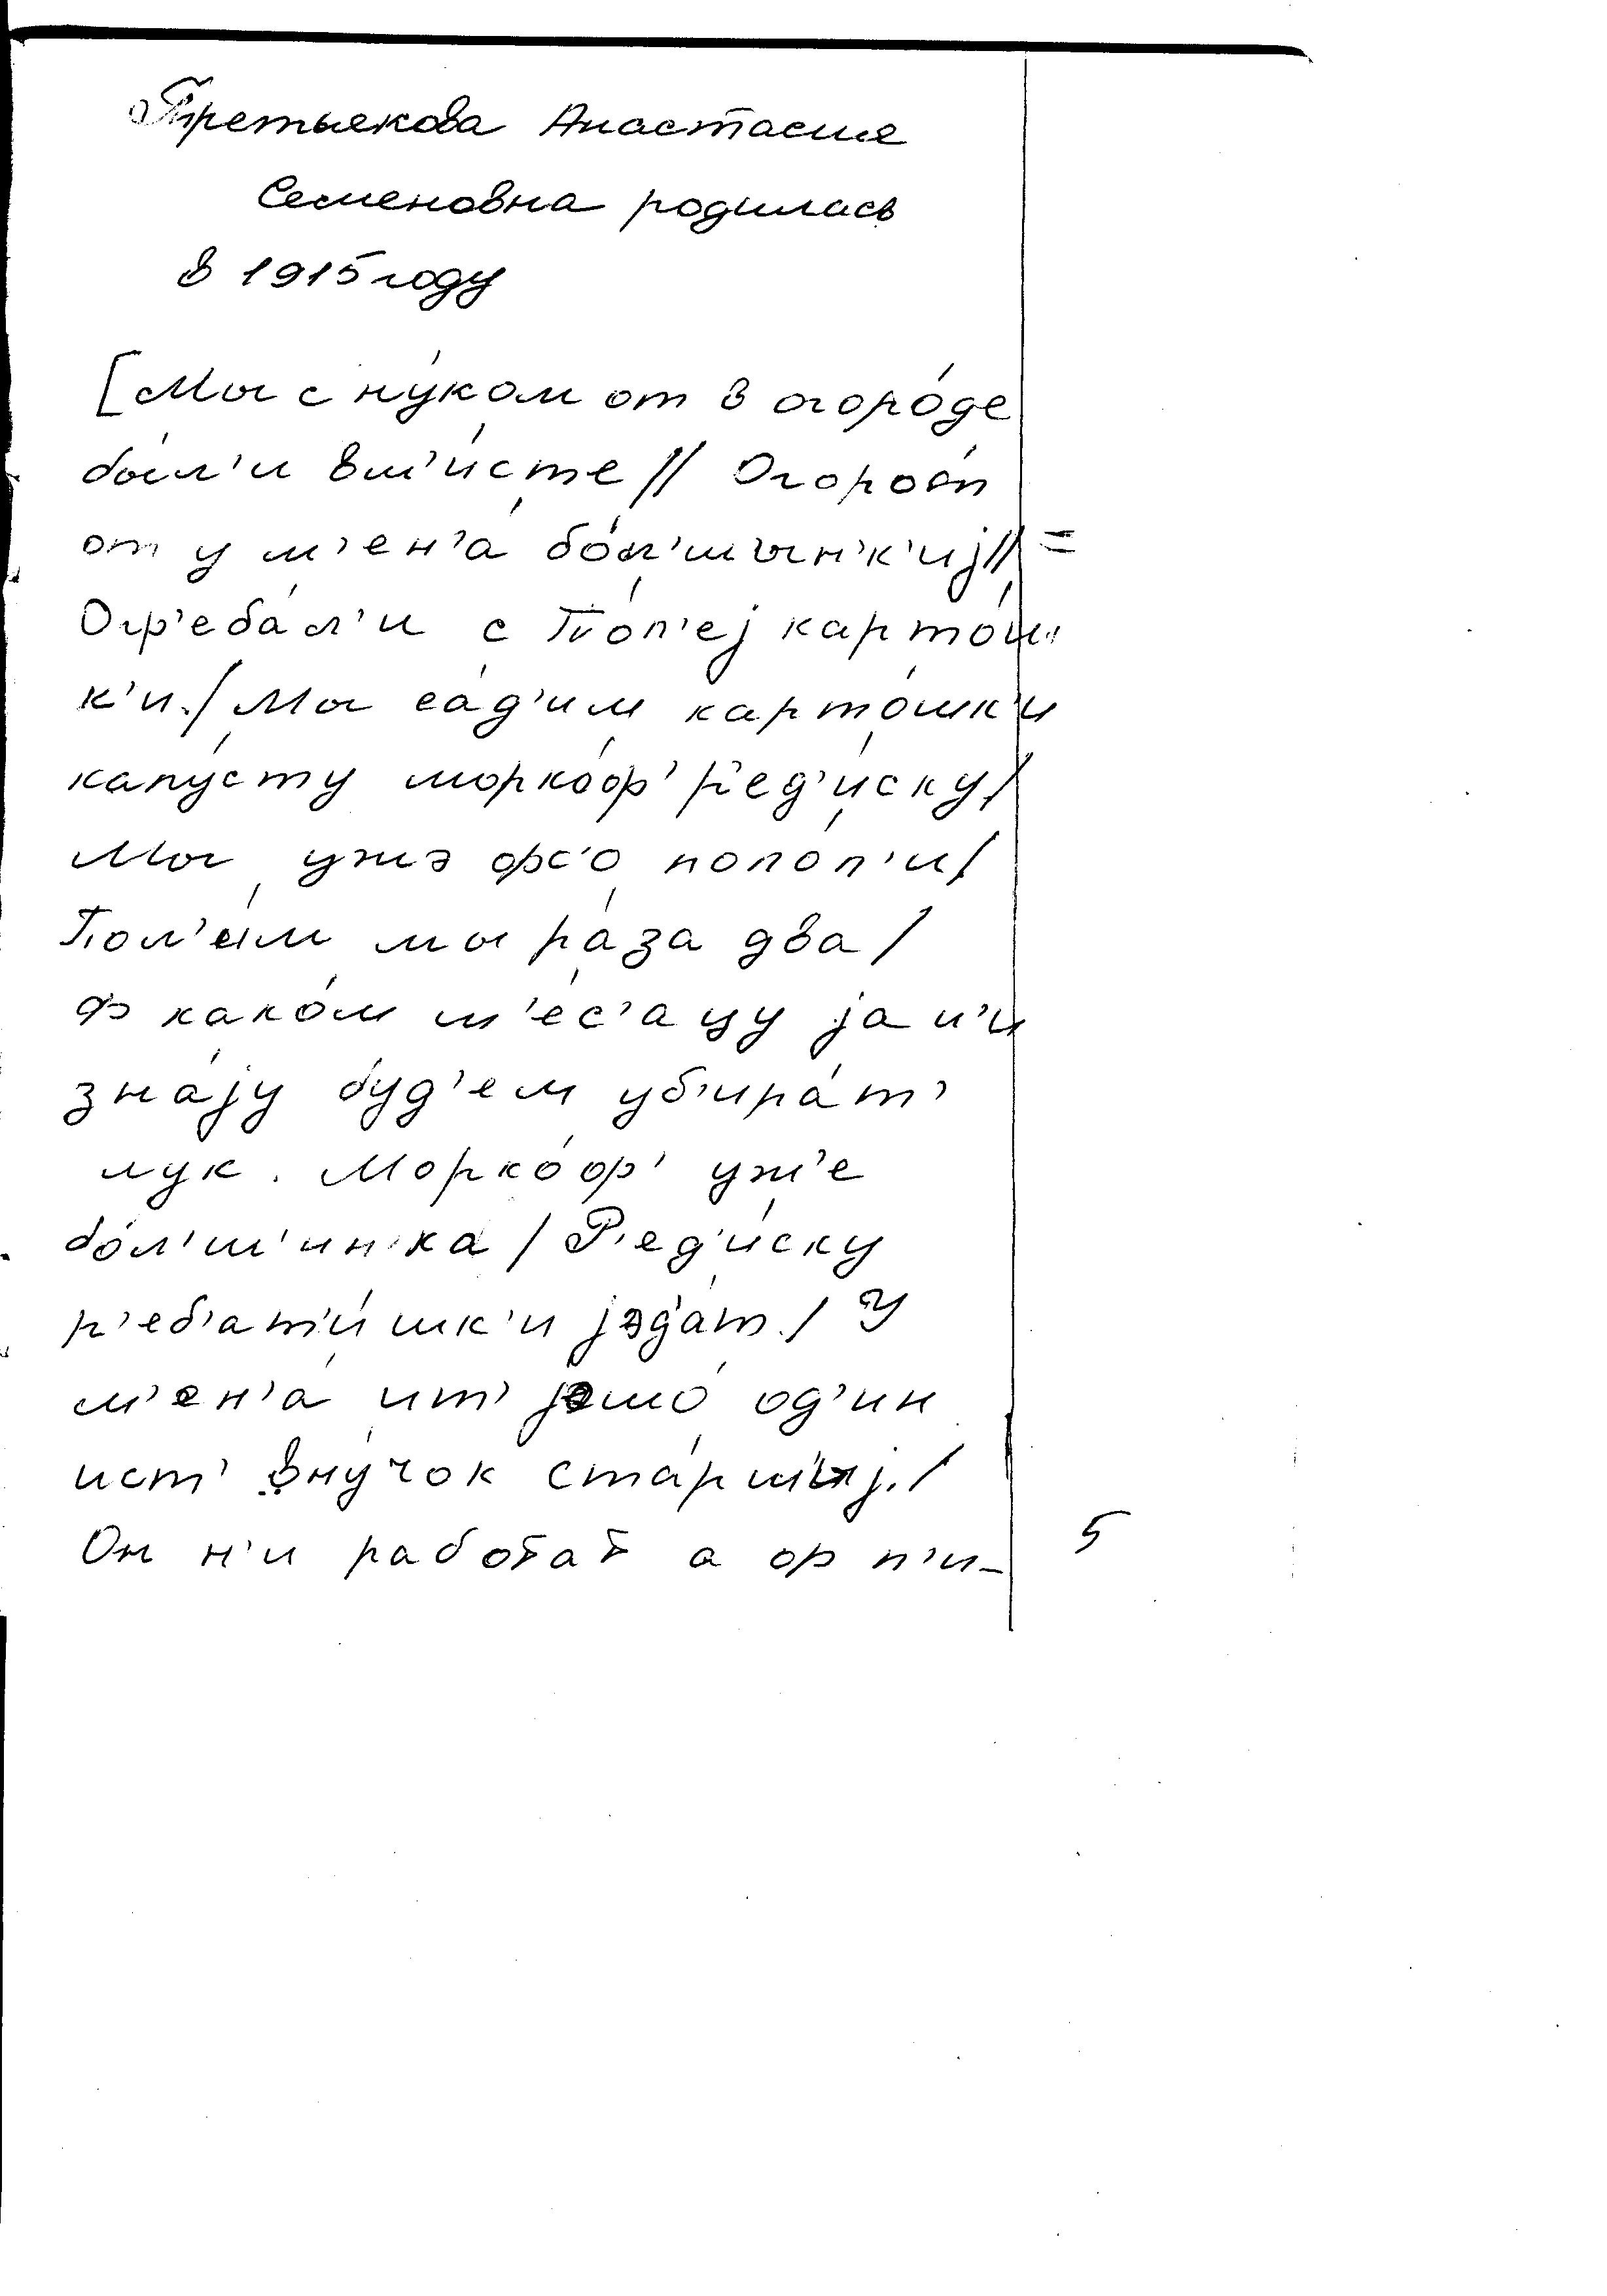 Третьякова Анастасия
Семеновна родилась
в 1915 году
[Мы с ну́ком от в огоро́де
бы́л'и вм'и́сте // Огоро́т
от у м'ен'а́ бо́л'шын'к'иј // =
Огр'еба́л'и с По́л'еј карто́ш
к'и./ Мы са́д'им карто́шк'и
капу́сту морко́ф' р'ед'и́ску /
Мы ужэ фс'о попол'и /
Пол'ы́м мы ра́за два /
Ф како́м м'ес'ацу ја н'и
зна́ју буд'ем уб'ира́т'
лук. Морко́ф' уж'е
бо́л'ш'ин'ка / Р'ед'и́ску
р'еб'ат'и́шк'и јэд'а́т./ У
м'ен'а́ ит' јешо́ од'ин
ист' вну́чок ста́ршыј./
Он н'и работат а ф п'и- 5